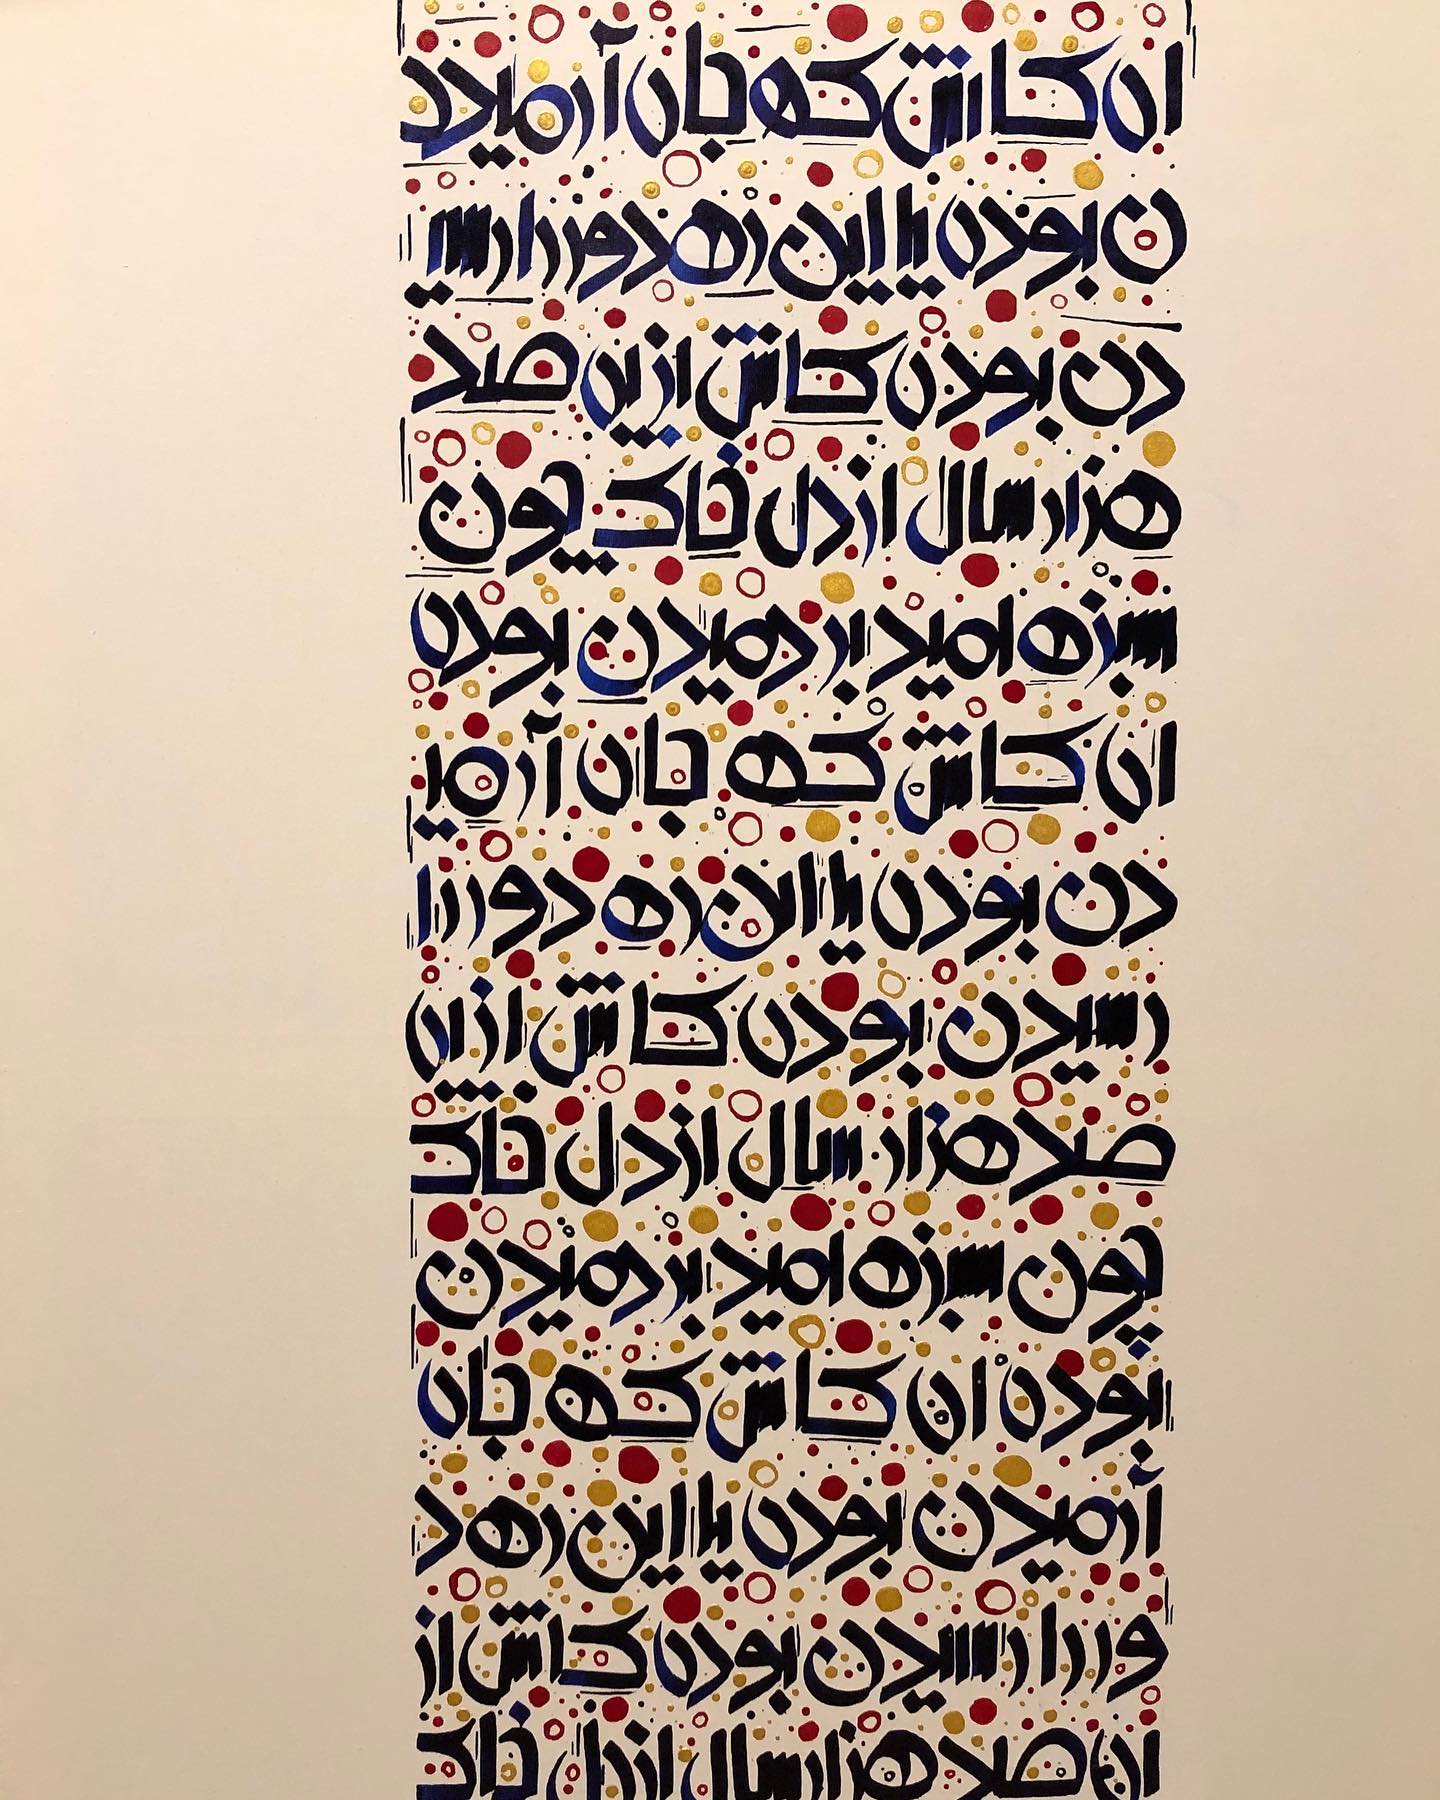 ای کاش که جای آرمید
ن بودی یا این ره دور را رسی
دن بودی کاش از پی صد
هزار سال از دل خاک چون
سبزه امید بر دمیدن بودی
ای کاش که جای آرمی
دن بودی یا این ره دور را
رسیدن بودی کاش از پی
صد هزار سال از دل خاک
چون سبزه امید بر دمیدن
بودی ای کاش که جای
آرمیدن بودی یا این ره د
ور را رسیدن بودی کاش از
پی صد هزار سال از دل خاک